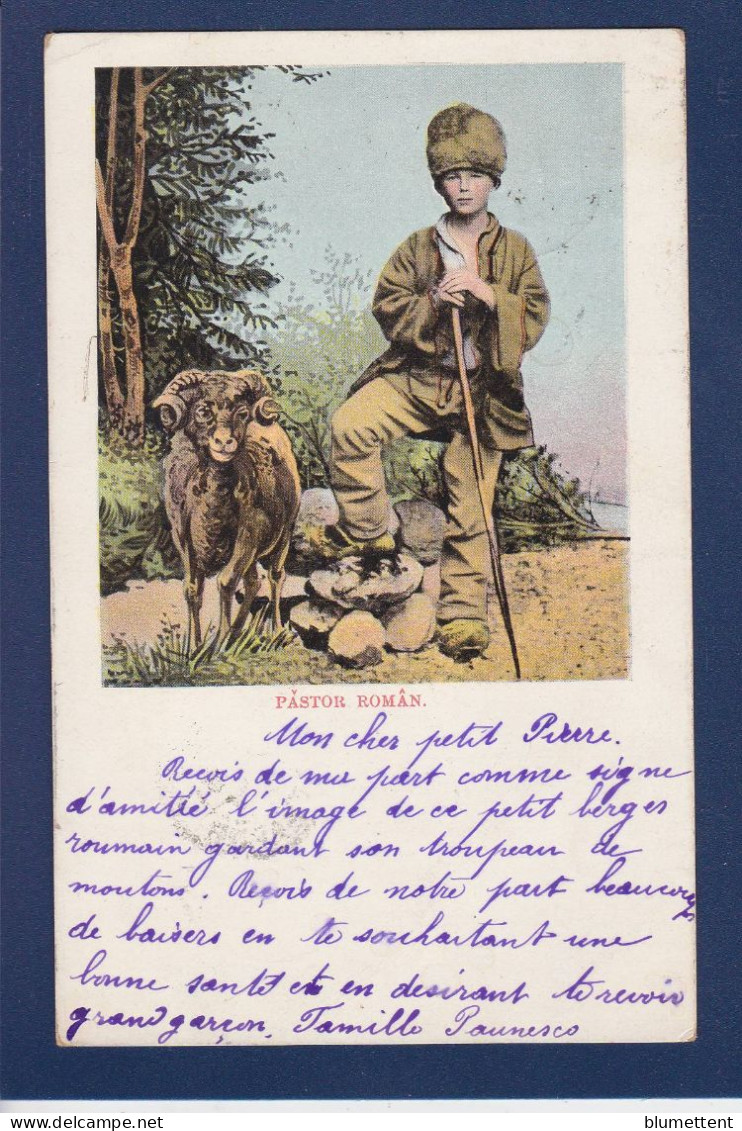 PĂSTOR ROMÂN.
Mon cher petit Pierre.
Reçois de ma part comme signe
d'amitié l'image de ce petit berger
roumain gardant son troupeau de
moutons. Reçois de notre part beaucoup
de baisers en te souhaitant une
bonne santé et en desirant te revoir
grand garçon. Famille Paunesco
blumettent